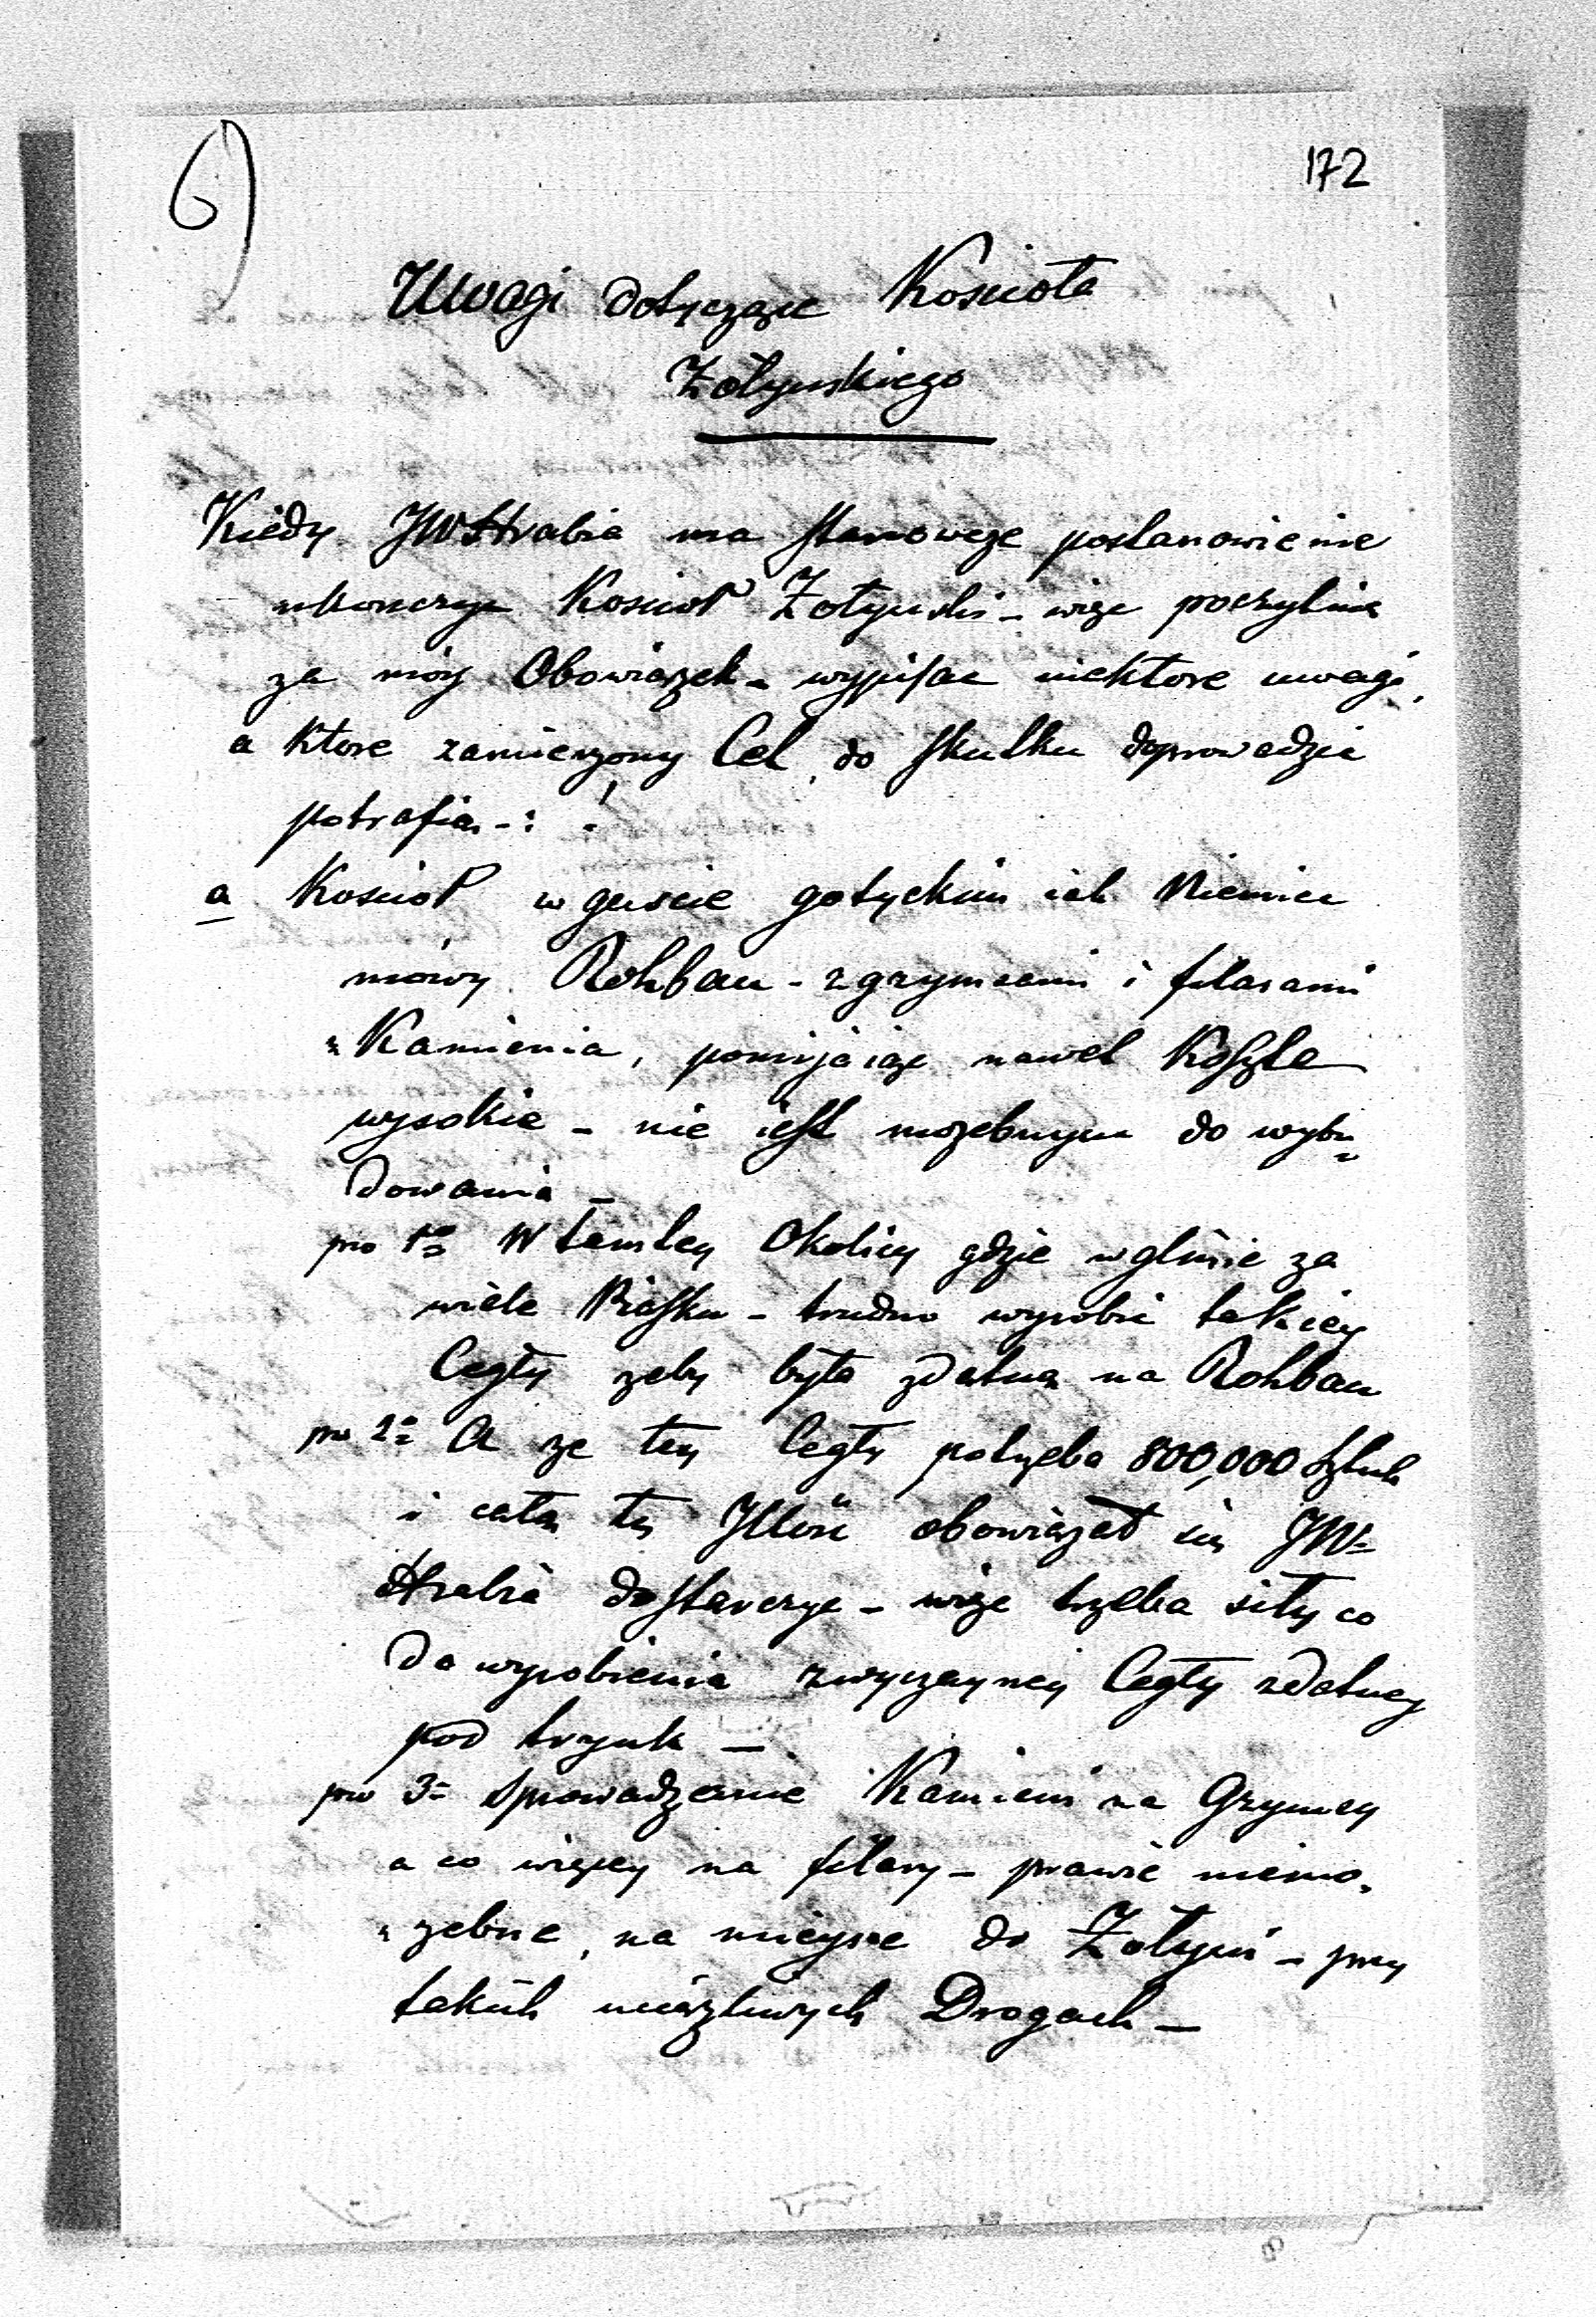 6)
172
Uwagi dotyczące Koscioła
Zołynskiego
Kiedy JWHrabia ma stanowcze postanowienie
ukonczyc Koscioł Zołynski - więc poczytuię
za moy Obowiązek - wypisac niektore uwagi,
a ktore zamierzony Cel, do skutku doprowadzic
potrafią -: !
a Koscioł w guscie gotyckim iak Niemiec
mówy Rohbau - z gzymsami i filarami
z Kamienia, pomijaiąc nawet koszta
wysokie - nie iest mozebnym do wybu
dowania -
pro 1o W tamtey Okolicy gdzie w glinie za
wiele Piasku - trudno wyrobic takiey
Cegły zeby była zdatną na Rohbau
pro 2o A ze tey Cegły potrzeba 800,000 Sztuk
i całą tę Ilość obowiązał się JW=
Hrabia dostarczyc - więc trzeba siły co
do wyrobienia zwyczayney Cegły zdatney
pod trynk -
pro 3= Sprowadzenie Kamieni na Gzymsy
a co więcey na filary - prawie niemo,
zebne, na mieysce do Zołyni - przy
takich uciązliwych Drogach -